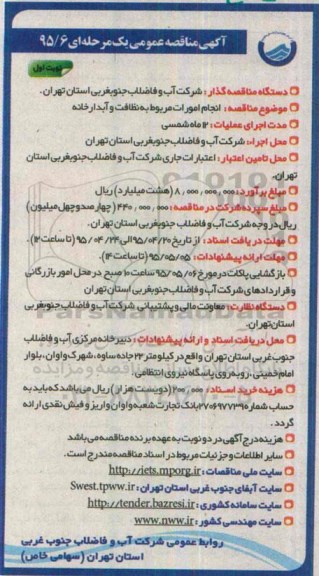 آگهی مناقصه عمومی یک مرحله‌ای ۹۵/۶
نوبت اول
دستگاه مناقصه گذار : شرکت آب و فاضلاب جنوبغربی استان تهران.
موضوع مناقصه : انجام امورات مربوط به نظافت و آبدارخانه
مدت اجرای عملیات : ۱۲ ماه شمسی
محل اجراء : شرکت آب و فاضلاب جنوبغربی استان تهران
محل تامین اعتبار : اعتبارات جاری شرکت آب و فاضلاب جنوبغربی استان
تهران.
مبلغ برآورد : ۸,۰۰۰,۰۰۰,۰۰۰ (هشت میلیارد) ریال
مبلغ سپرده شرکت در مناقصه : ۴۴۰,۰۰۰,۰۰۰ (چهارصد و چهل میلیون)
ریال در وجه شرکت آب و فاضلاب جنوبغربی استان تهران.
مهلت دریافت اسناد : از تاریخ ۹۵/۰۴/۲۰ الی ۹۵/۰۴/۲۴ (تا ساعت ۱۲).
مهلت ارائه پیشنهادات : ۹۵/۰۵/۰۵ (تا ساعت ۱۴).
بازگشایی پاکات در مورخ ۹۵/۰۵/۰۶ ساعت ۱۰ صبح در محل امور بازرگانی
و قراردادهای شرکت آب و فاضلاب جنوبغربی استان تهران
دستگاه نظارت : معاونت مالی و پشتیبانی شرکت آب و فاضلاب جنوبغربی
استان تهران.
محل دریافت اسناد و ارائه پیشنهادات : دبیرخانه مرکزی آب و فاضلاب
جنوب غربی استان تهران واقع در کیلومتر ۲۳ جاده ساوه، شهرک واوان، بلوار
امام خمینی، روبروی پاسگاه نیروی انتظامی.
هزینه خرید اسناد : ۲۰۰,۰۰۰ (دویست هزار) ریال می باشد که باید به
حساب شماره ۲۷۰۶۹۷۷۳۹۰ بانک تجارت شعبه واوان واریز و فیش نقدی ارائه
گردد.
هزینه درج آگهی در دو نوبت به عهده برنده مناقصه می باشد
سایر اطلاعات و جزئیات مربوط در اسناد مناقصه مندرج است.
سایت ملی مناقصات : http://iets.mporg.ir
سایت آبفای جنوب غربی استان تهران : Swest.tpww.ir
سایت سامانه کشوری : http://tender.bazresi.ir
سایت مهندسی کشور : www.nww.ir
روابط عمومی شرکت آب و فاضلاب جنوب غربی
استان تهران (سهامی خاص)